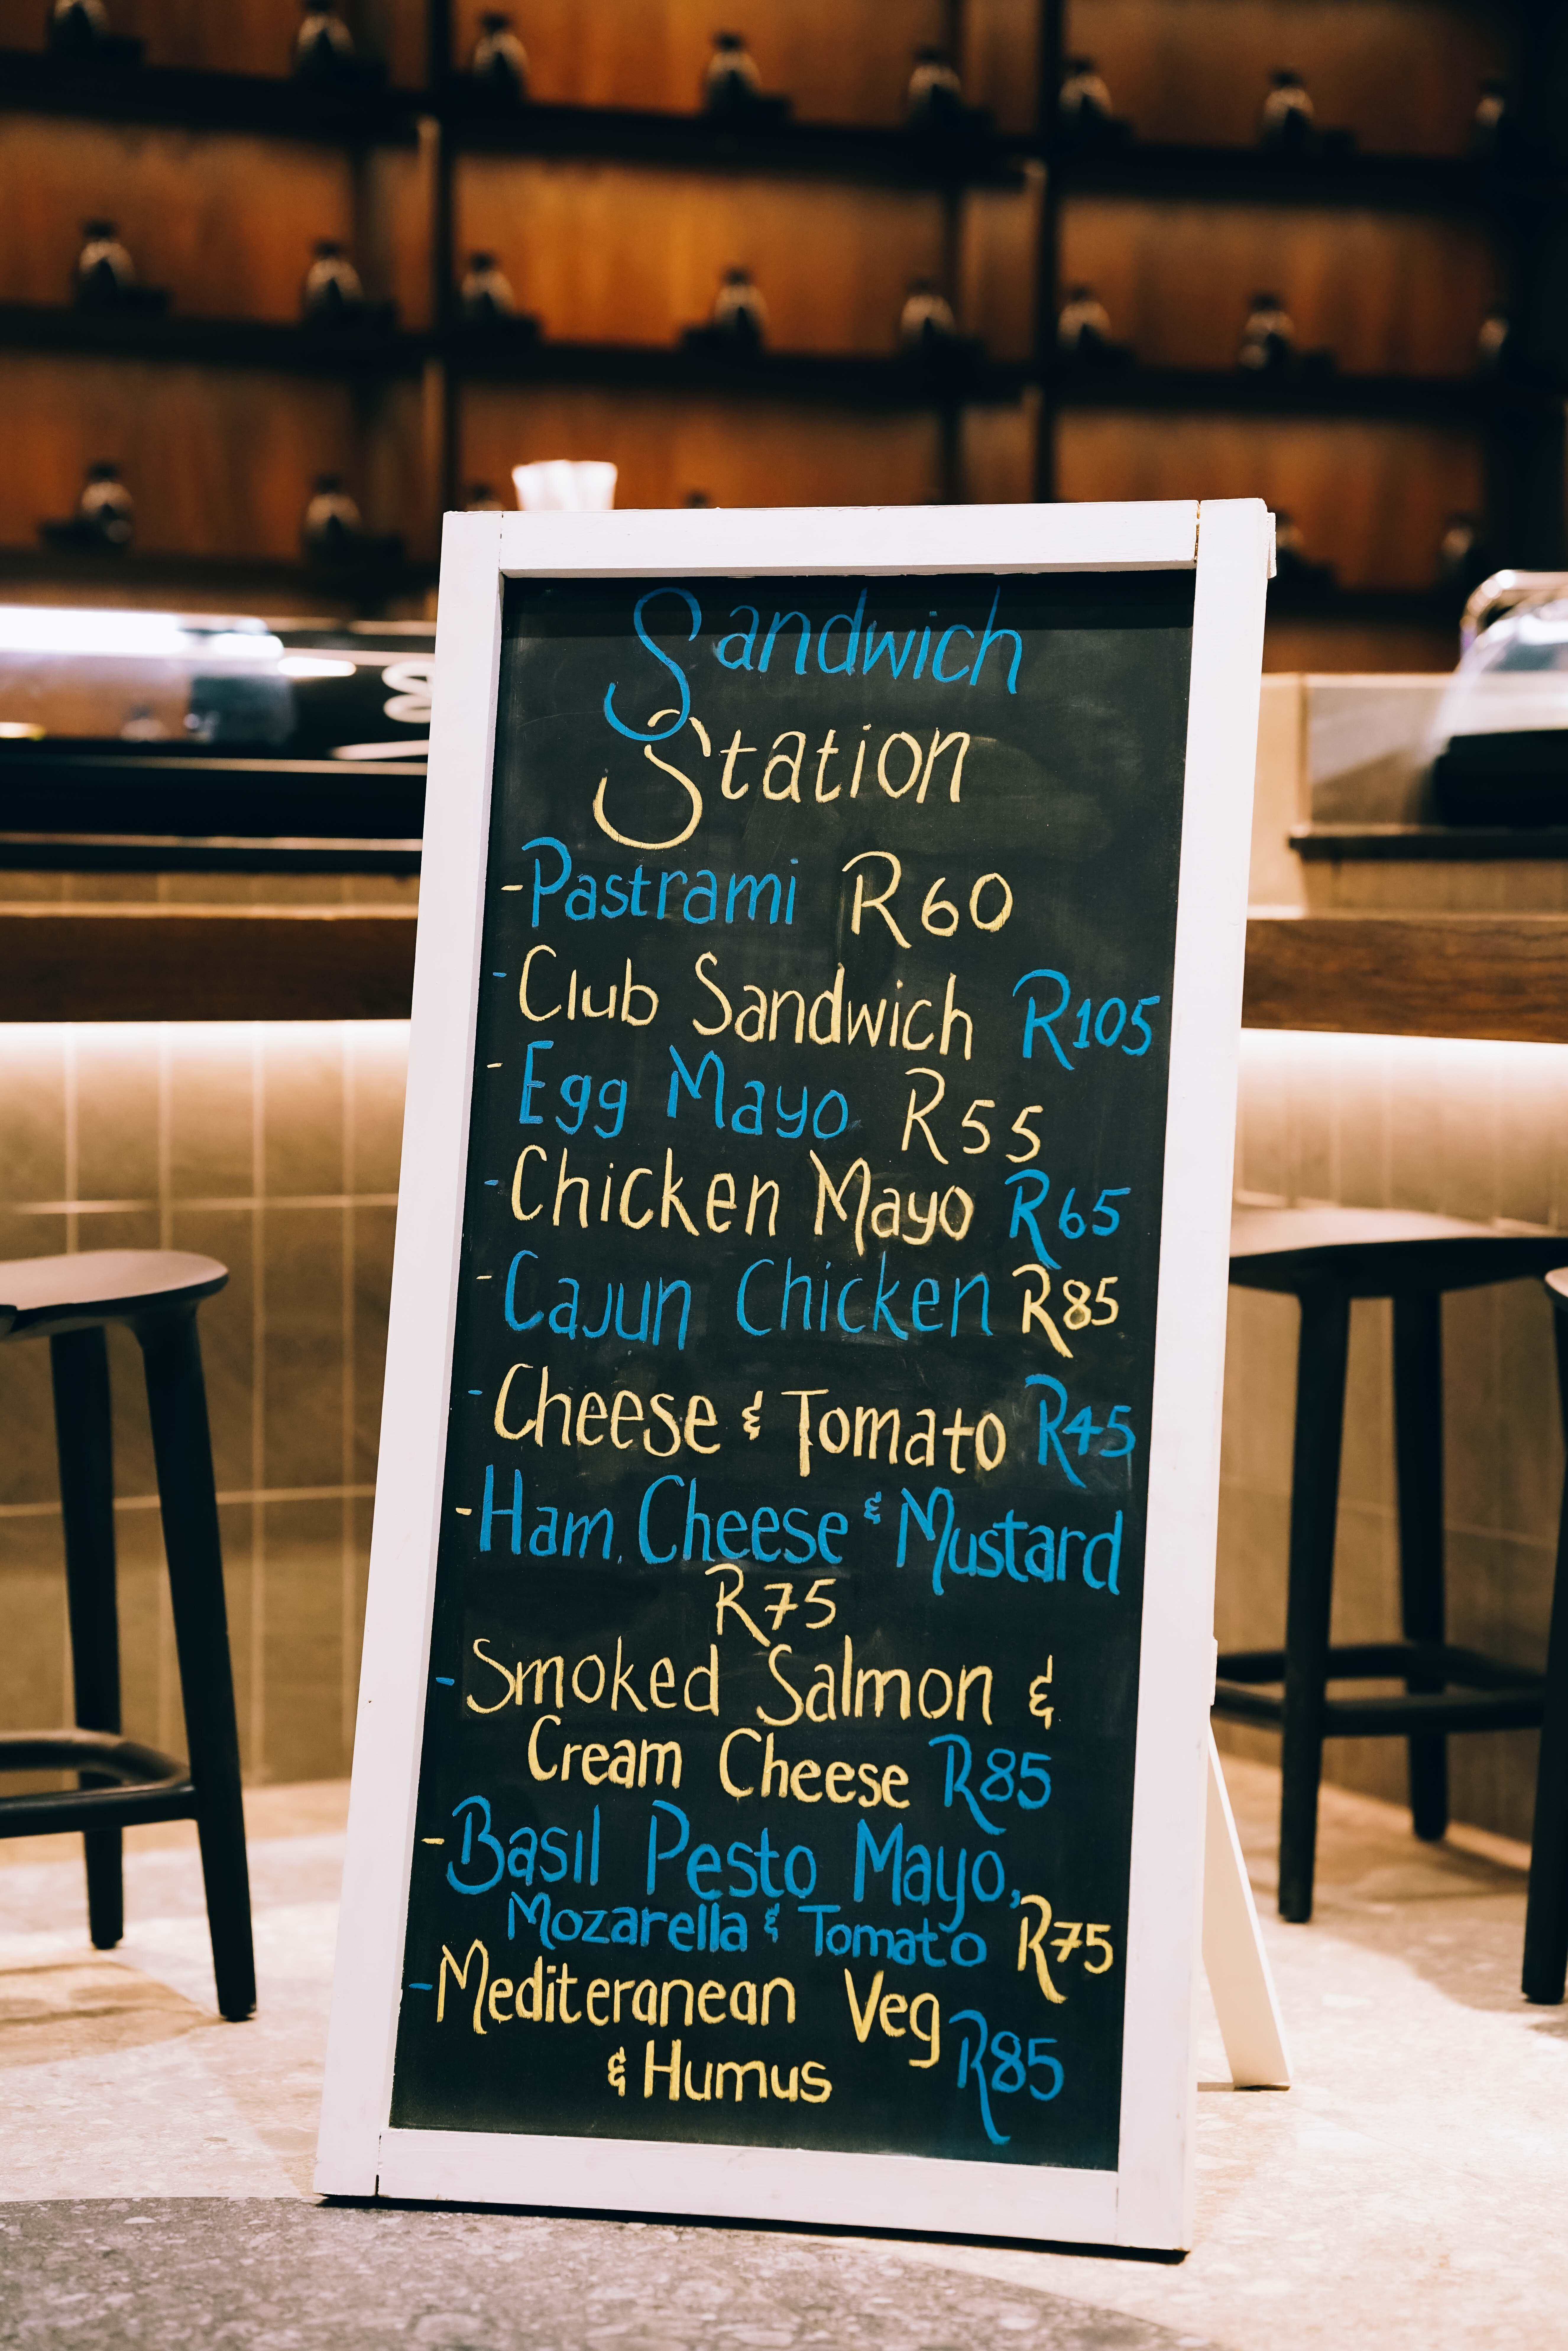 Sandwich
Station
-Pastrami R60
-Club Sandwich R105
-Egg Mayo R55
-Chicken Mayo R65
-Cajun Chicken R85
-Cheese & Tomato R45
-Ham, Cheese & Mustard
R75
-Smoked Salmon &
Cream Cheese R85
-Basil Pesto Mayo,
Mozarella & Tomato R75
-Mediteranean Veg
& Humus R85